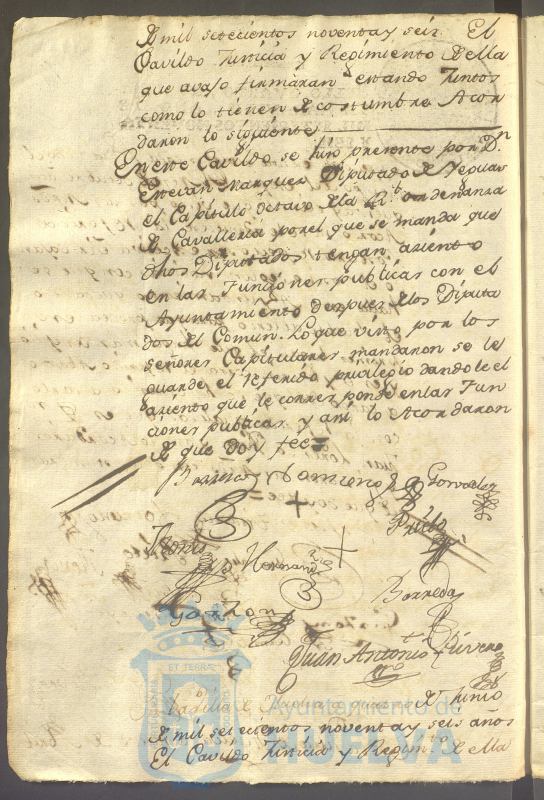 de mil setecientos noventa y seis. El
Cavildo Justicia y Regimiento de ella
que avajo firmaran estando Juntos
como lo tienen de costumbre Acor
daron lo siguiente
En este Cavildo se hizo presente por Dn
Estevan Marquez Diputado de Yeguas
el Capitulo Octavo de la Rl. ordenanza
de Cavalleria por el que se manda que
dhos Diputados tengan asiento
en las Funciones publicas con el
Ayuntamiento despues de los Diputa
dos del Comun. Lo que visto por los
señores Capitulares mandaron se le
guarde el referido privilegio dandole el
asiento que le corresponde en las Fun
ciones publicas y asi lo Acordaron
de que doy fee=
Barrera
Prieto
Hernandz
Barreda
Garzon
Juan Antonio Rivera
de Junio
de mil setecientos noventa y seis años
El Cavildo Justicia y Regimto. de ella
ET TERRAE
Ayuntamiento de
HUELVA